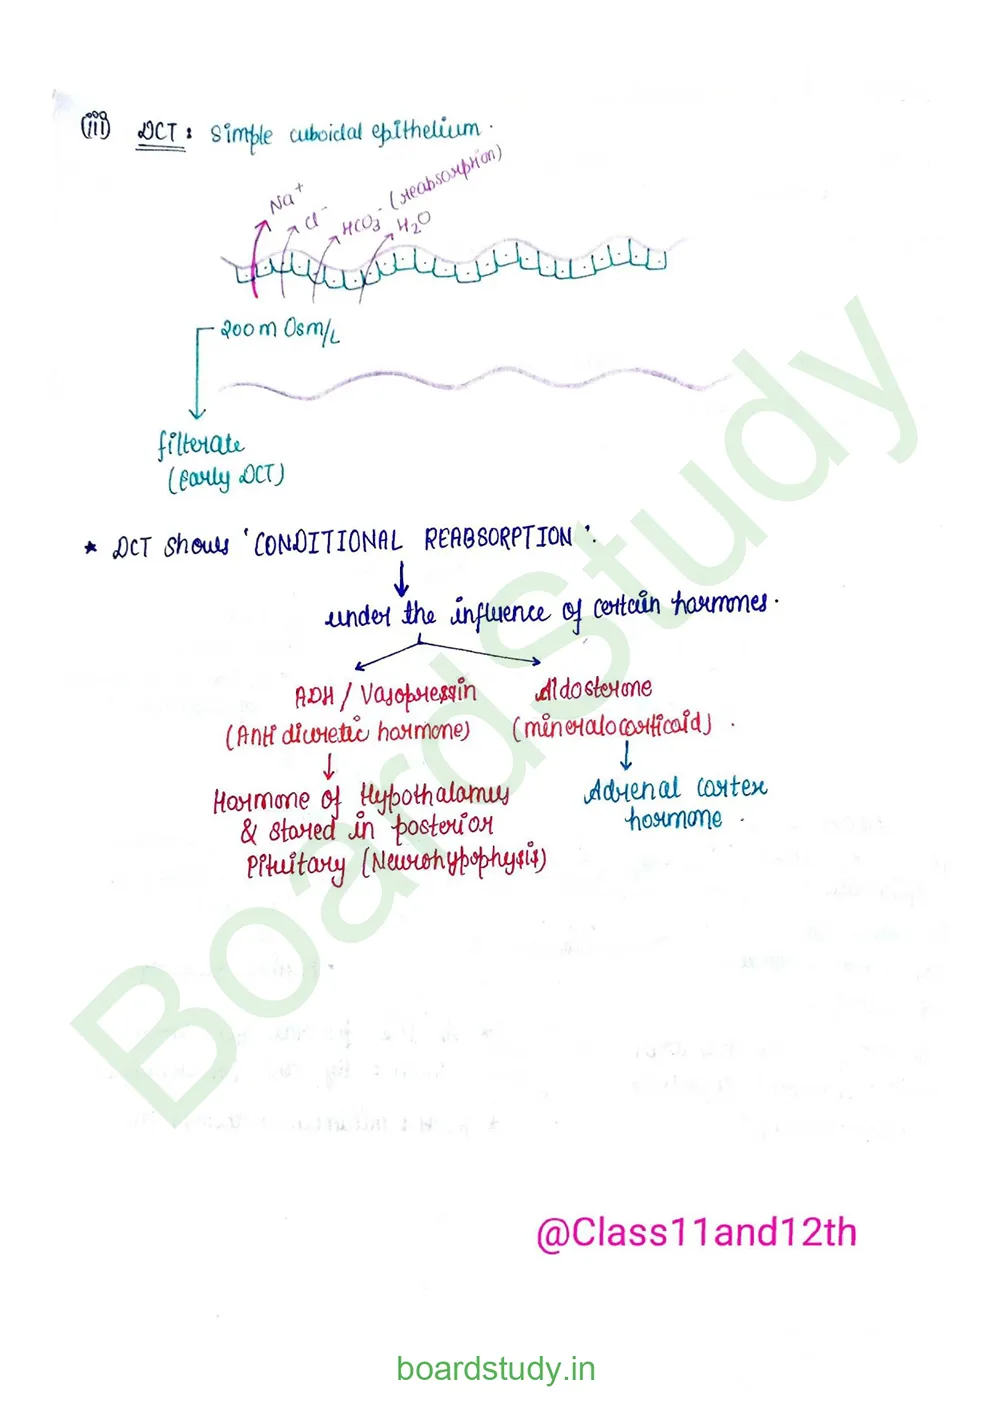 (iii) DCT : Simple cuboidal epithelium.
Na⁺ Cl⁻ HCO₃⁻ (reabsorption)
H₂O
200 m Osm/L
filterate
(Early DCT)
* DCT shows 'CONDITIONAL REABSORPTION'.
under the influence of certain hormones.
ADH / Vasopressin
(Anti diuretic hormone)
Hormone of Hypothalamus
& stored in posterior
Pituitary (Neurohypophysis)
Aldosterone
(mineralocorticoid).
Adrenal cortex
hormone.
BoardStudy
@Class11and12th
boardstudy.in